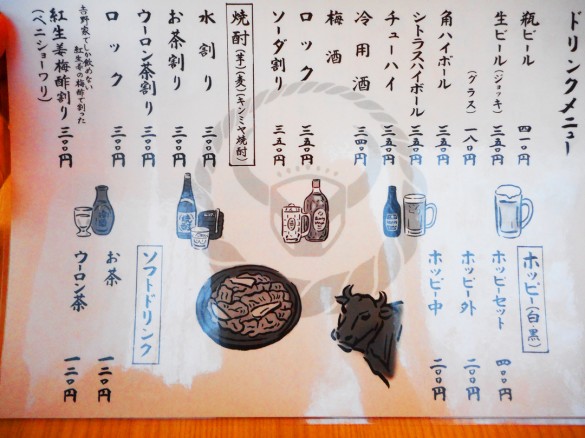 ドリンクメニュー
瓶ビール 四一〇円
生ビール(ジョッキ) 三五〇円
(グラス) 一八〇円
角ハイボール 三五〇円
シトラスハイボール 三五〇円
チューハイ 三五〇円
冷用酒 三四〇円
梅酒
ロック 三五〇円
ソーダ割り 三五〇円
焼酎(芋)(麦)(キンミヤ焼酎)
水割り 三〇〇円
お茶割り 三〇〇円
ウーロン茶割り 三〇〇円
ロック 三〇〇円
吉野家でしか飲めない
紅生姜の梅酢で割った
紅生姜梅酢割り 三〇〇円
(ベニショーワリ)
ホッピー(白・黒)
ホッピーセット 四〇〇円
ホッピー外 二〇〇円
ホッピー中 二〇〇円
ソフトドリンク
お茶 一二〇円
ウーロン茶 一二〇円